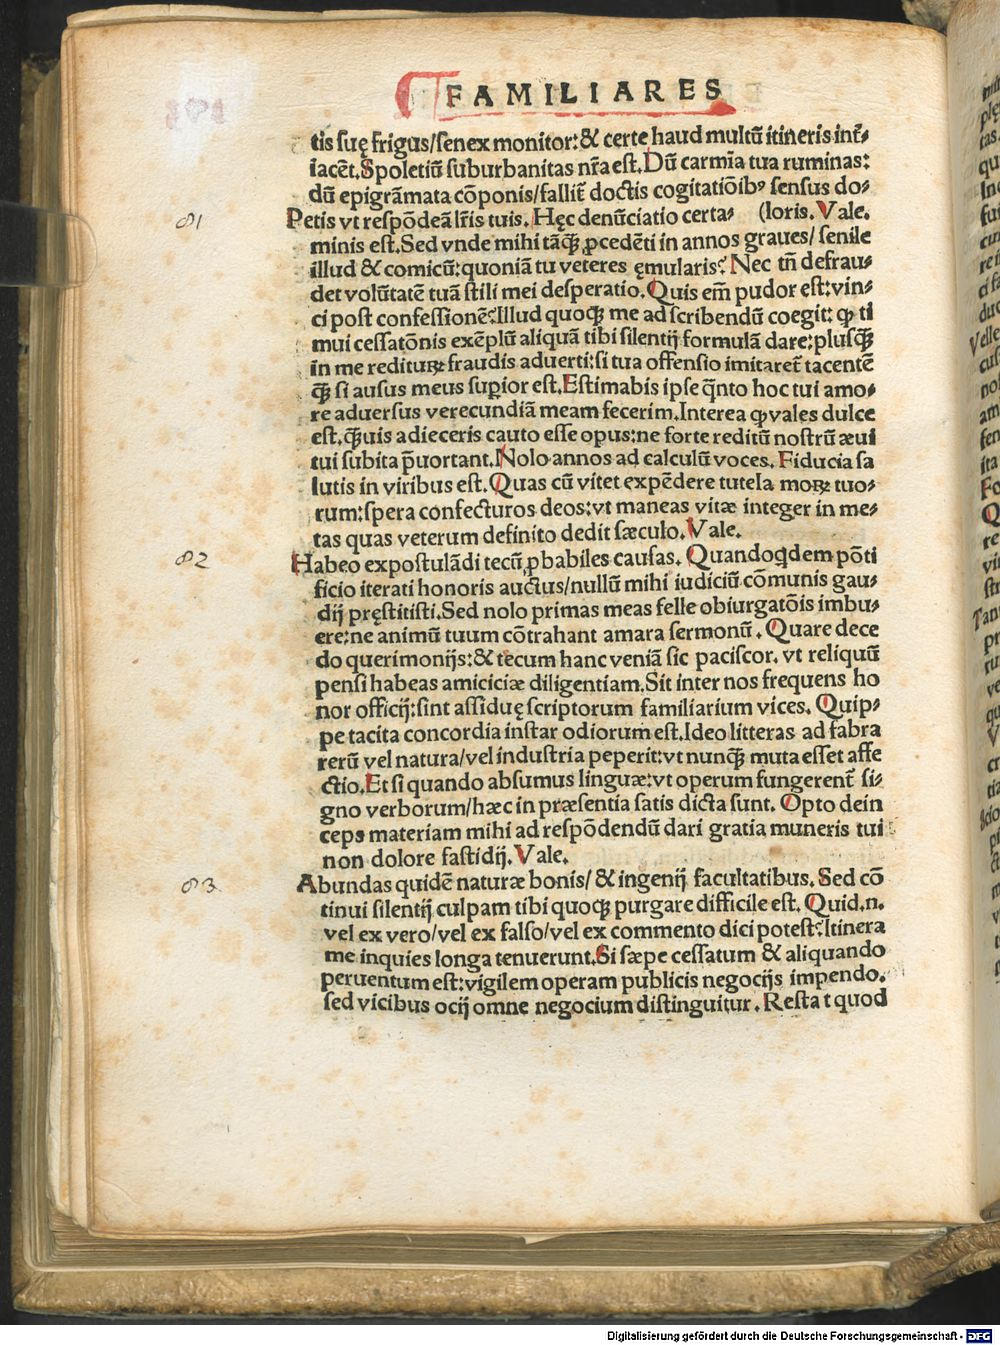 FAMILIARES
tis suę frigus/senex monitor:& certe haud multū itineris inr̄-
iacēt.Spoletiū suburbanitas nr̄a est.Dū carmīa tua ruminas:
dū epigrāmata cōponis/fallit̄ doctis cogitatiōibꝰ sensus do-
81
Petis vt respōdeā lr̄is tuis. Hęc denūciatio certa- (loris. Vale.
minis est.Sed vnde mihi tāqꝫ ꝓcedēti in annos graues/ senile
illud & comicū:quoniā tu veteres ęmularis? Nec tn̄ defrau-
det volūtatē tuā stili mei desperatio.Quis em̄ pudor est:vin-
ci post confessionē?Illud quoqꝫ me ad scribendū coegit: ꝙ ti
mui cessatōnis exēplū aliquā tibi silentij formulā dare:plusqꝫ
in me redituꝝ fraudis aduerti:si tua offensio imitaret̄ tacentē
qꝫ si ausus meus suꝑior est.Estimabis ipse q̄nto hoc tui amo-
re aduersus verecundiā meam fecerim.Interea ꝙ vales dulce
est.qꝫuis adieceris cauto esse opus:ne forte reditū nostrū æui
tui subita p̄uortant.Nolo annos ad calculū voces. Fiducia sa
lutis in viribus est.Quas cū vitet expēdere tutela moꝝ tuo-
rum:spera confecturos deos:vt maneas vitæ integer in me-
tas quas veterum definito dedit sæculo.Vale.
82
Habeo expostulādi tecū ꝓbabiles causas. Quandoqdem pōti
ficio iterati honoris auctus/nullū mihi iudiciū cōmunis gau-
dij pręstitisti.Sed nolo primas meas felle obiurgatōis imbu-
ere:ne animū tuum cōtrahant amara sermonū. Quare dece
do querimonijs:& tecum hanc veniā sic paciscor. vt reliquū
pensi habeas amiciciæ diligentiam.Sit inter nos frequens ho
nor officij:sint assiduę scriptorum familiarium vices. Quip-
pe tacita concordia instar odiorum est.Ideo litteras ad fabra
rerū vel natura/vel industria peperit:vt nunqꝫ muta esset affe
ctio.Et si quando absumus linguæ:vt operum fungerent̄ si-
gno verborum/hæc in præsentia satis dicta sunt. Opto dein
ceps materiam mihi ad respōdendū dari gratia muneris tui
non dolore fastidij.Vale.
83
Abundas quidē naturæ bonis/ & ingenij facultatibus. Sed cō
tinui silentij culpam tibi quoqꝫ purgare difficile est. Quid.n.
vel ex vero/vel ex falso/vel ex commento dici potest?Itinera
me inquies longa tenuerunt.Si sæpe cessatum & aliquando
peruentum est:vigilem operam publicis negocijs impendo.
sed vicibus ocij omne negocium distinguitur. Resta t quod
Digitalisierung gefördert durch die Deutsche Forschungsgemeinschaft - DFG